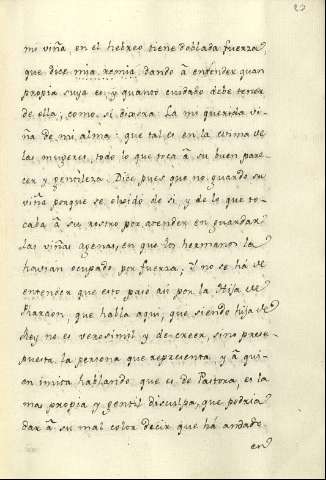 23
mi viña, en el hebreo tiene doblada fuerza
que dice mia remia, dando à entender quan
propia suya es, y quanto cuidado debe tener
de ella; como, si dixera. La mi querida vi-
ña de mi alma: que tal es en la estima de
las mugeres, todo lo que toca à su buen pare-
cer y gentileza. Dice, pues que no guardó su
viña porque se olvidò de si, y de lo que to-
caba à su rostro por atender en guardar
las viñas agenas, en que los hermanos la
havian ocupado por fuerza. Y no se há de
entender que esto pasó asi por la Hija de
Pharaon, que habla aqui, que siendo hija de
Rey no es verosimil y de creer, sino presu-
puesta la persona que representa y à qui-
en imita hablando que es de Pastora, es la
mas propia y gentil disculpa, que podria
dar à su mal color decir que há andado
en